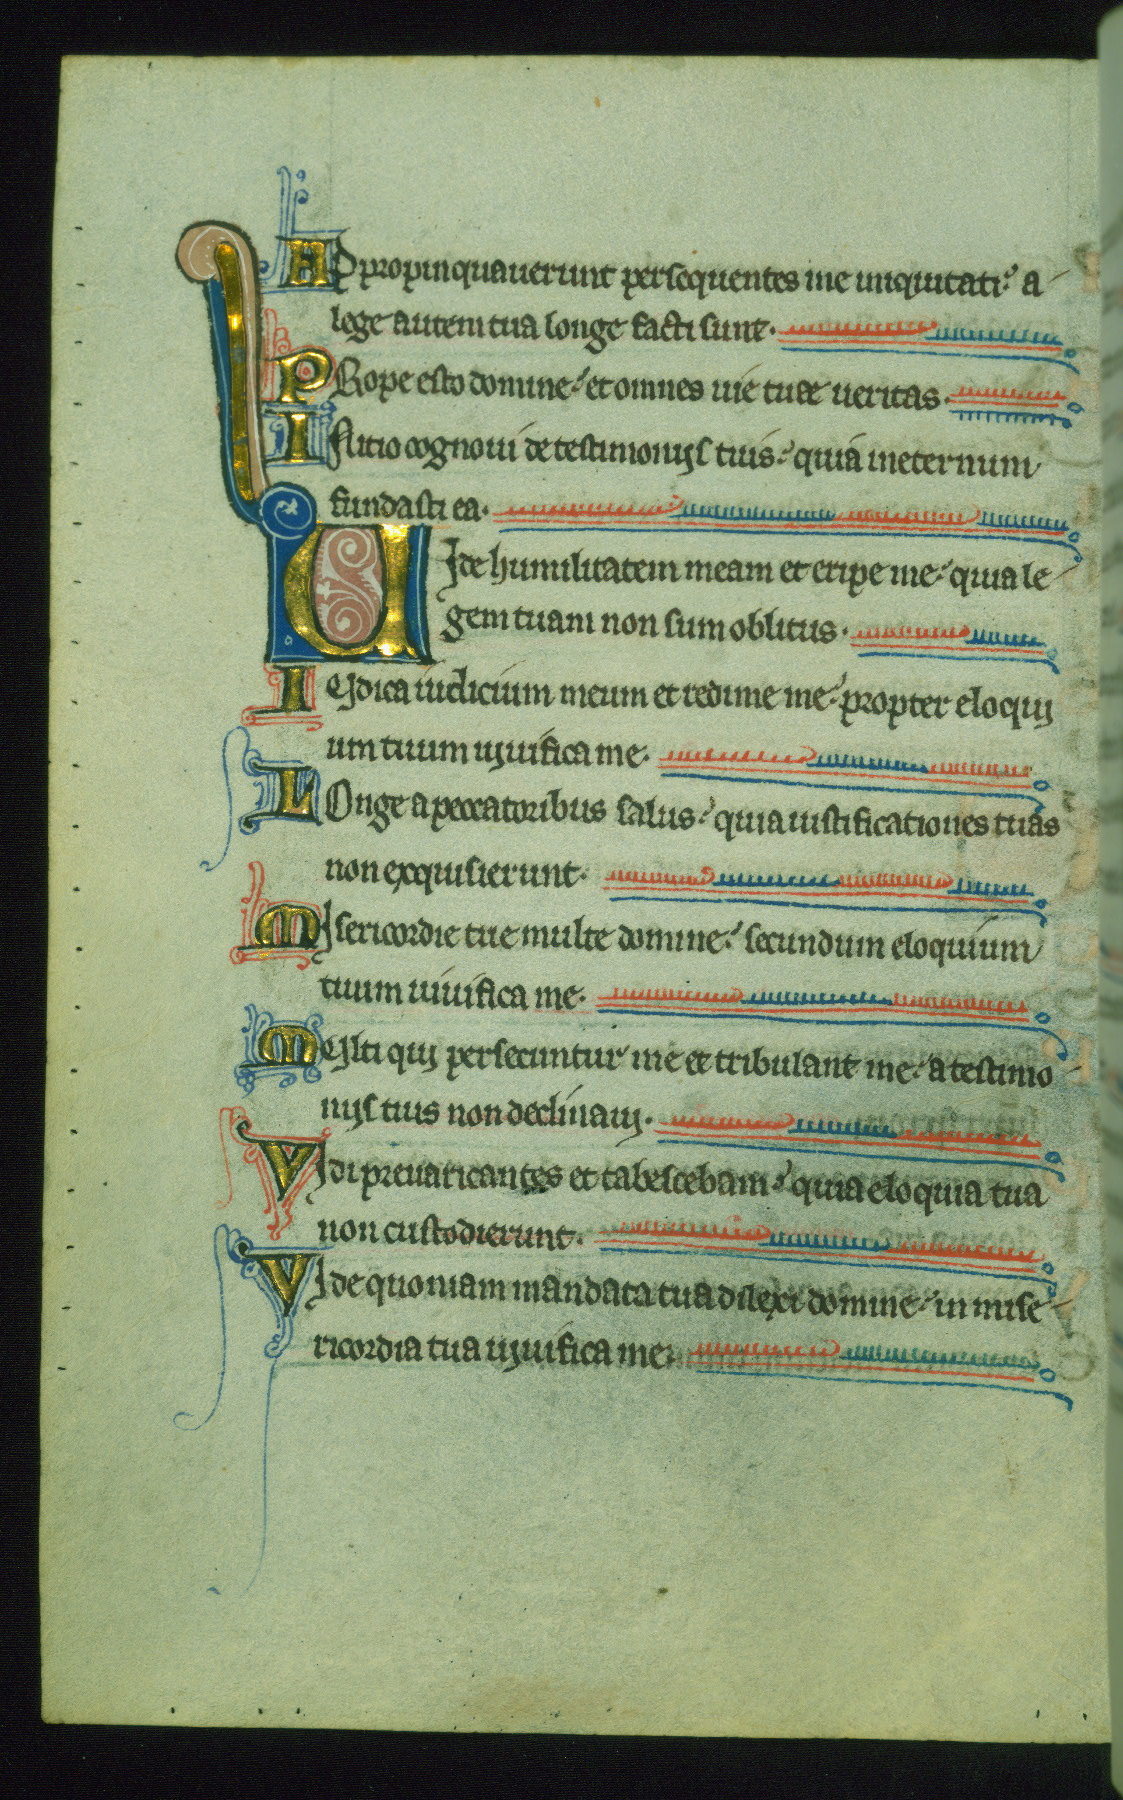 ADpropinquauerunt persequentes me iniquitati: a
lege autem tua longe facti sunt.
PRope esto domine: et omnes uie tue ueritas.
INitio cognoui de testimonijs tuis: quia ineternum
fundasti ea.
UIde humilitatem meam et eripe me: quia le
gem tuam non sum oblitus.
IUdica iudicium meum et redime me: propter eloqui
um tuum uiuifica me.
LOnge a peccatoribus salus: quia iustificationes tuas
non exquisierunt.
MIsericordie tue multe domine: secundum eloquium
tuum uiuifica me.
MUlti qui persecuntur me et tribulant me: a testimo
nijs tuis non declinaui.
VIdi preuaricantes et tabescebam: quia eloquia tua
non custodierunt.
VIde quoniam mandata tua dilexi domine: in mise
ricordia tua uiuifica me.